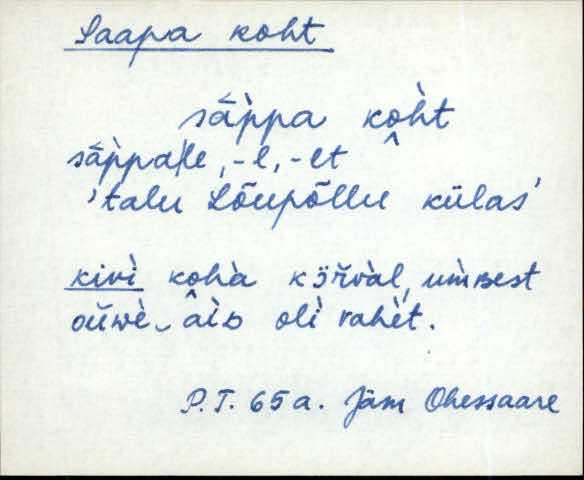 Saapa koht
sāp̀pa ko̭h̀t
sāp̀pa|le, -l, -lt
'talu Lõupõllu külas'
kivì kohà kȫrvàl, um̀best
oūwè âìɒ olì vahèt.
P.T. 65a. Jäm Ohessaare